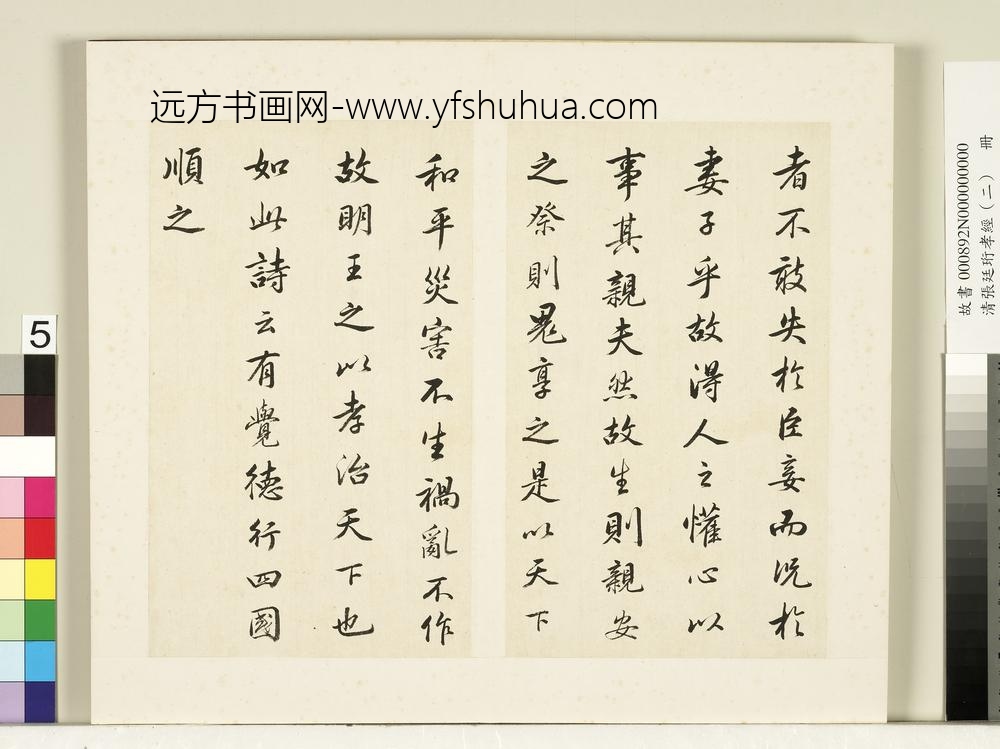 远方书画网-www.yfshuhua.com
者不敢失於臣妾而況於
妻子乎故得人之懽心以
事其親夫然故生則親安
之祭則鬼享之是以天下
和平災害不生禍亂不作
故明王之以孝治天下也
如此詩云有覺德行四國
順之
故書000892N000000000
清張廷珩孝經(二) 冊
5